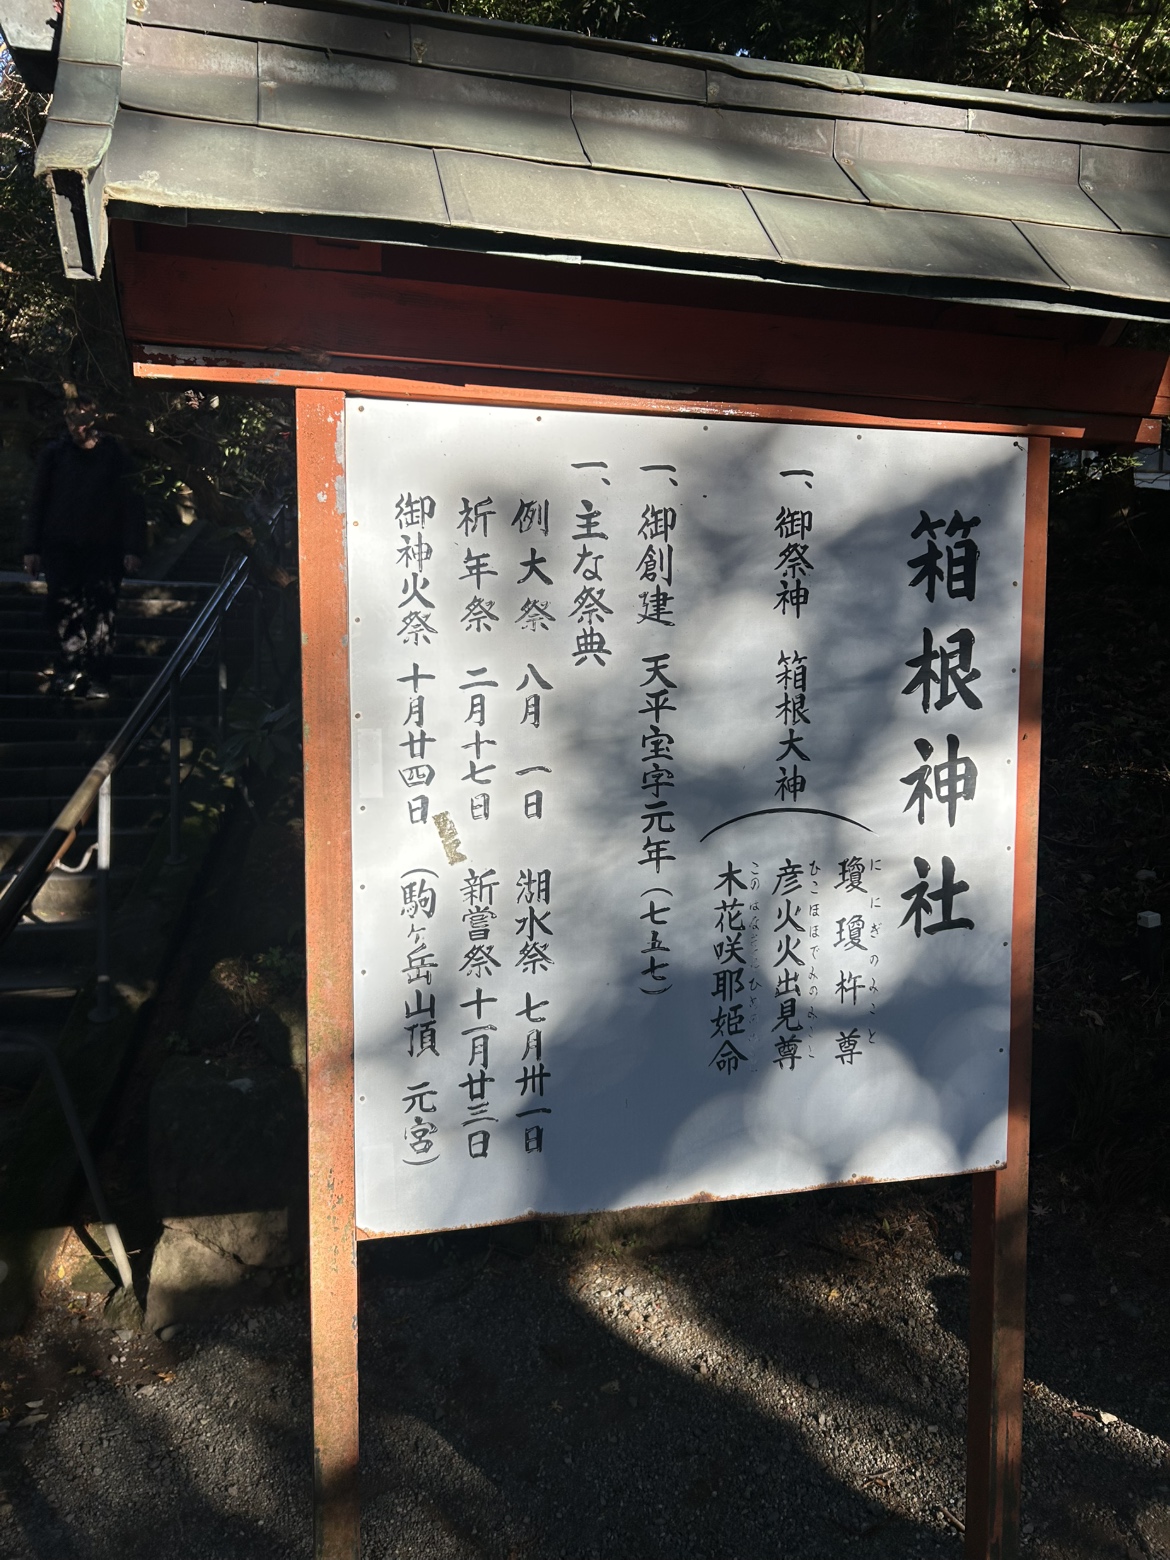 箱根神社
一、御祭神 箱根大神
瓊瓊杵尊
ににぎのみこと
彦火火出見尊
ひこほほでみのみこと
木花咲耶姫命
一、御創建 天平宝字元年(七五七)
一、主な祭典
例大祭 八月 一日 湖水祭 七月卅一日
祈年祭 二月十七日 新嘗祭 十一月廿三日
御神火祭 十月廿四日 (駒ヶ岳山頂 元宮)